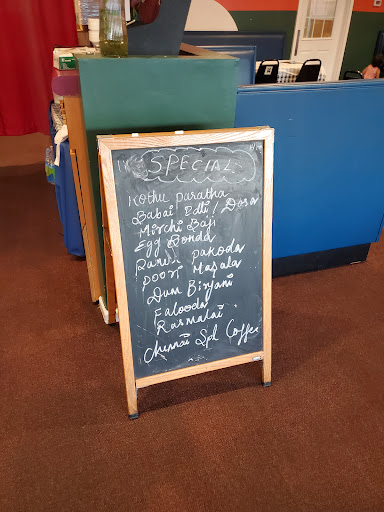 SPECIAL
Kothu paratha
Babai Idli / Dosa
Mirchi Baji
Egg Bonda
Paneer pakoda
poori Masala
Dum Biryani
Falooda
Rasmalai
Chennai Spl Coffee